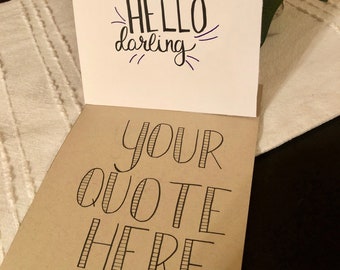 HELLO
darling
YOUR
QUOTE
HERE